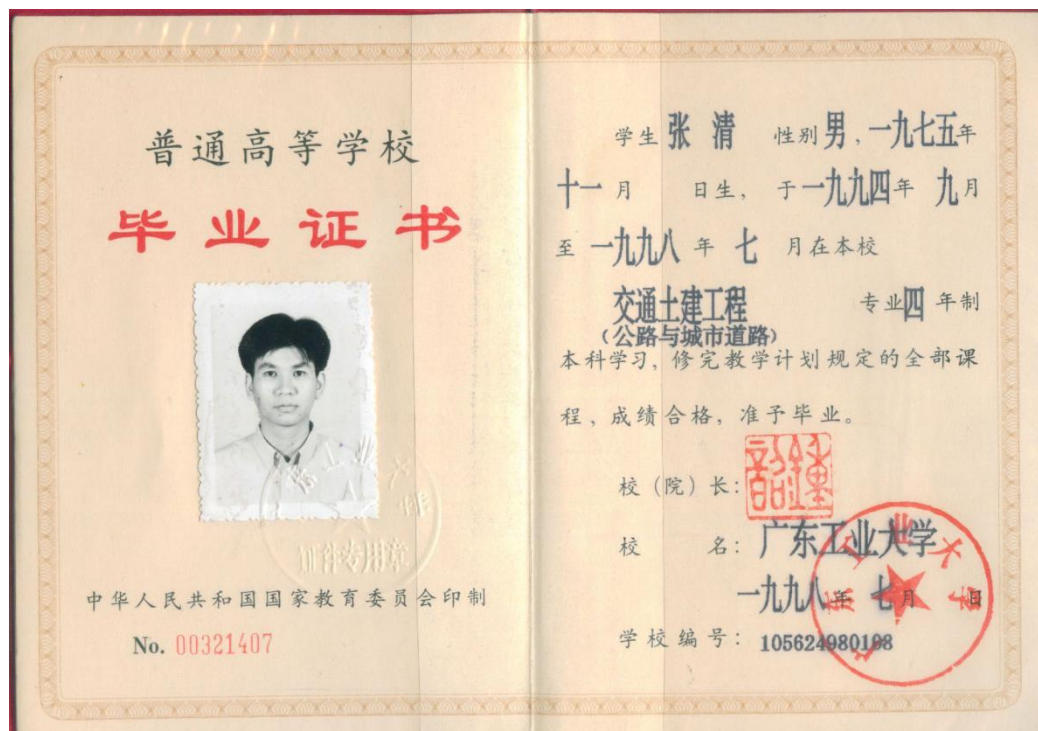 普通高等学校
毕业证书
证件专用章
中华人民共和国国家教育委员会印制
No. 00321407
学生 张 清 性别 男,一九七五年
十一月 日生,于一九九四年 九月
至 一九九八 年 七 月在本校
交通土建工程 专业四 年制
(公路与城市道路)
本科学习,修完教学计划规定的全部课
程,成绩合格,准予毕业。
校(院)长:
校 名:广东工业大学
一九九八年 七月 日
学校编号:105624980198
广东工业大学